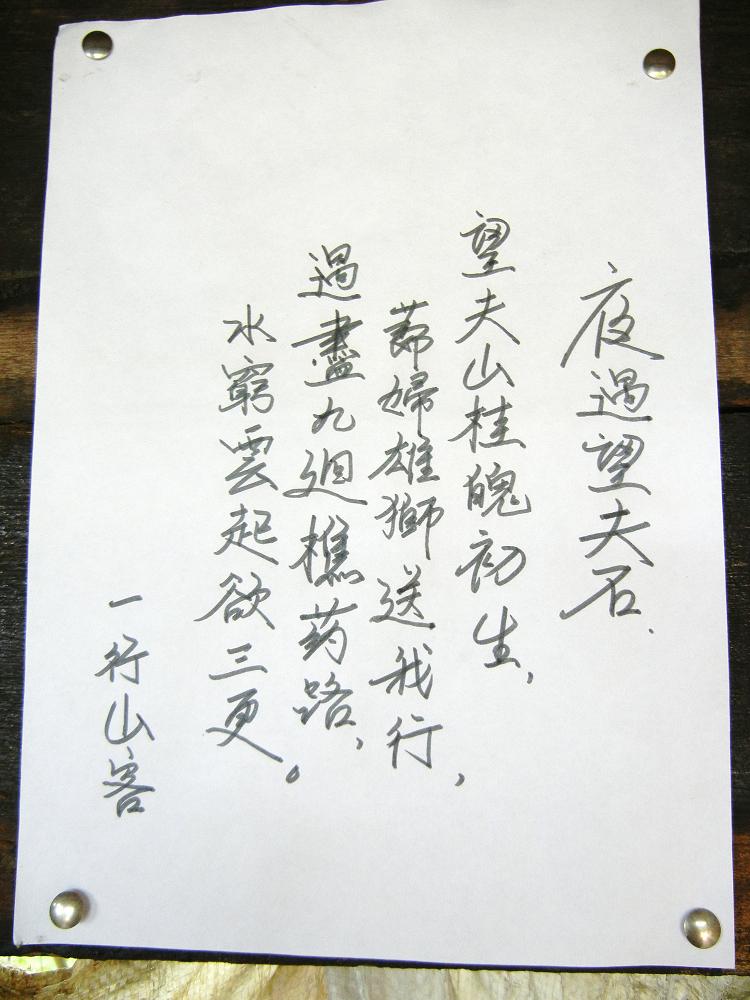 夜過望夫石.
望夫山桂魄初生,
婦雄獅送我行,
過盡九廻樵药路,
水窮雲起欲三更。
一行山客